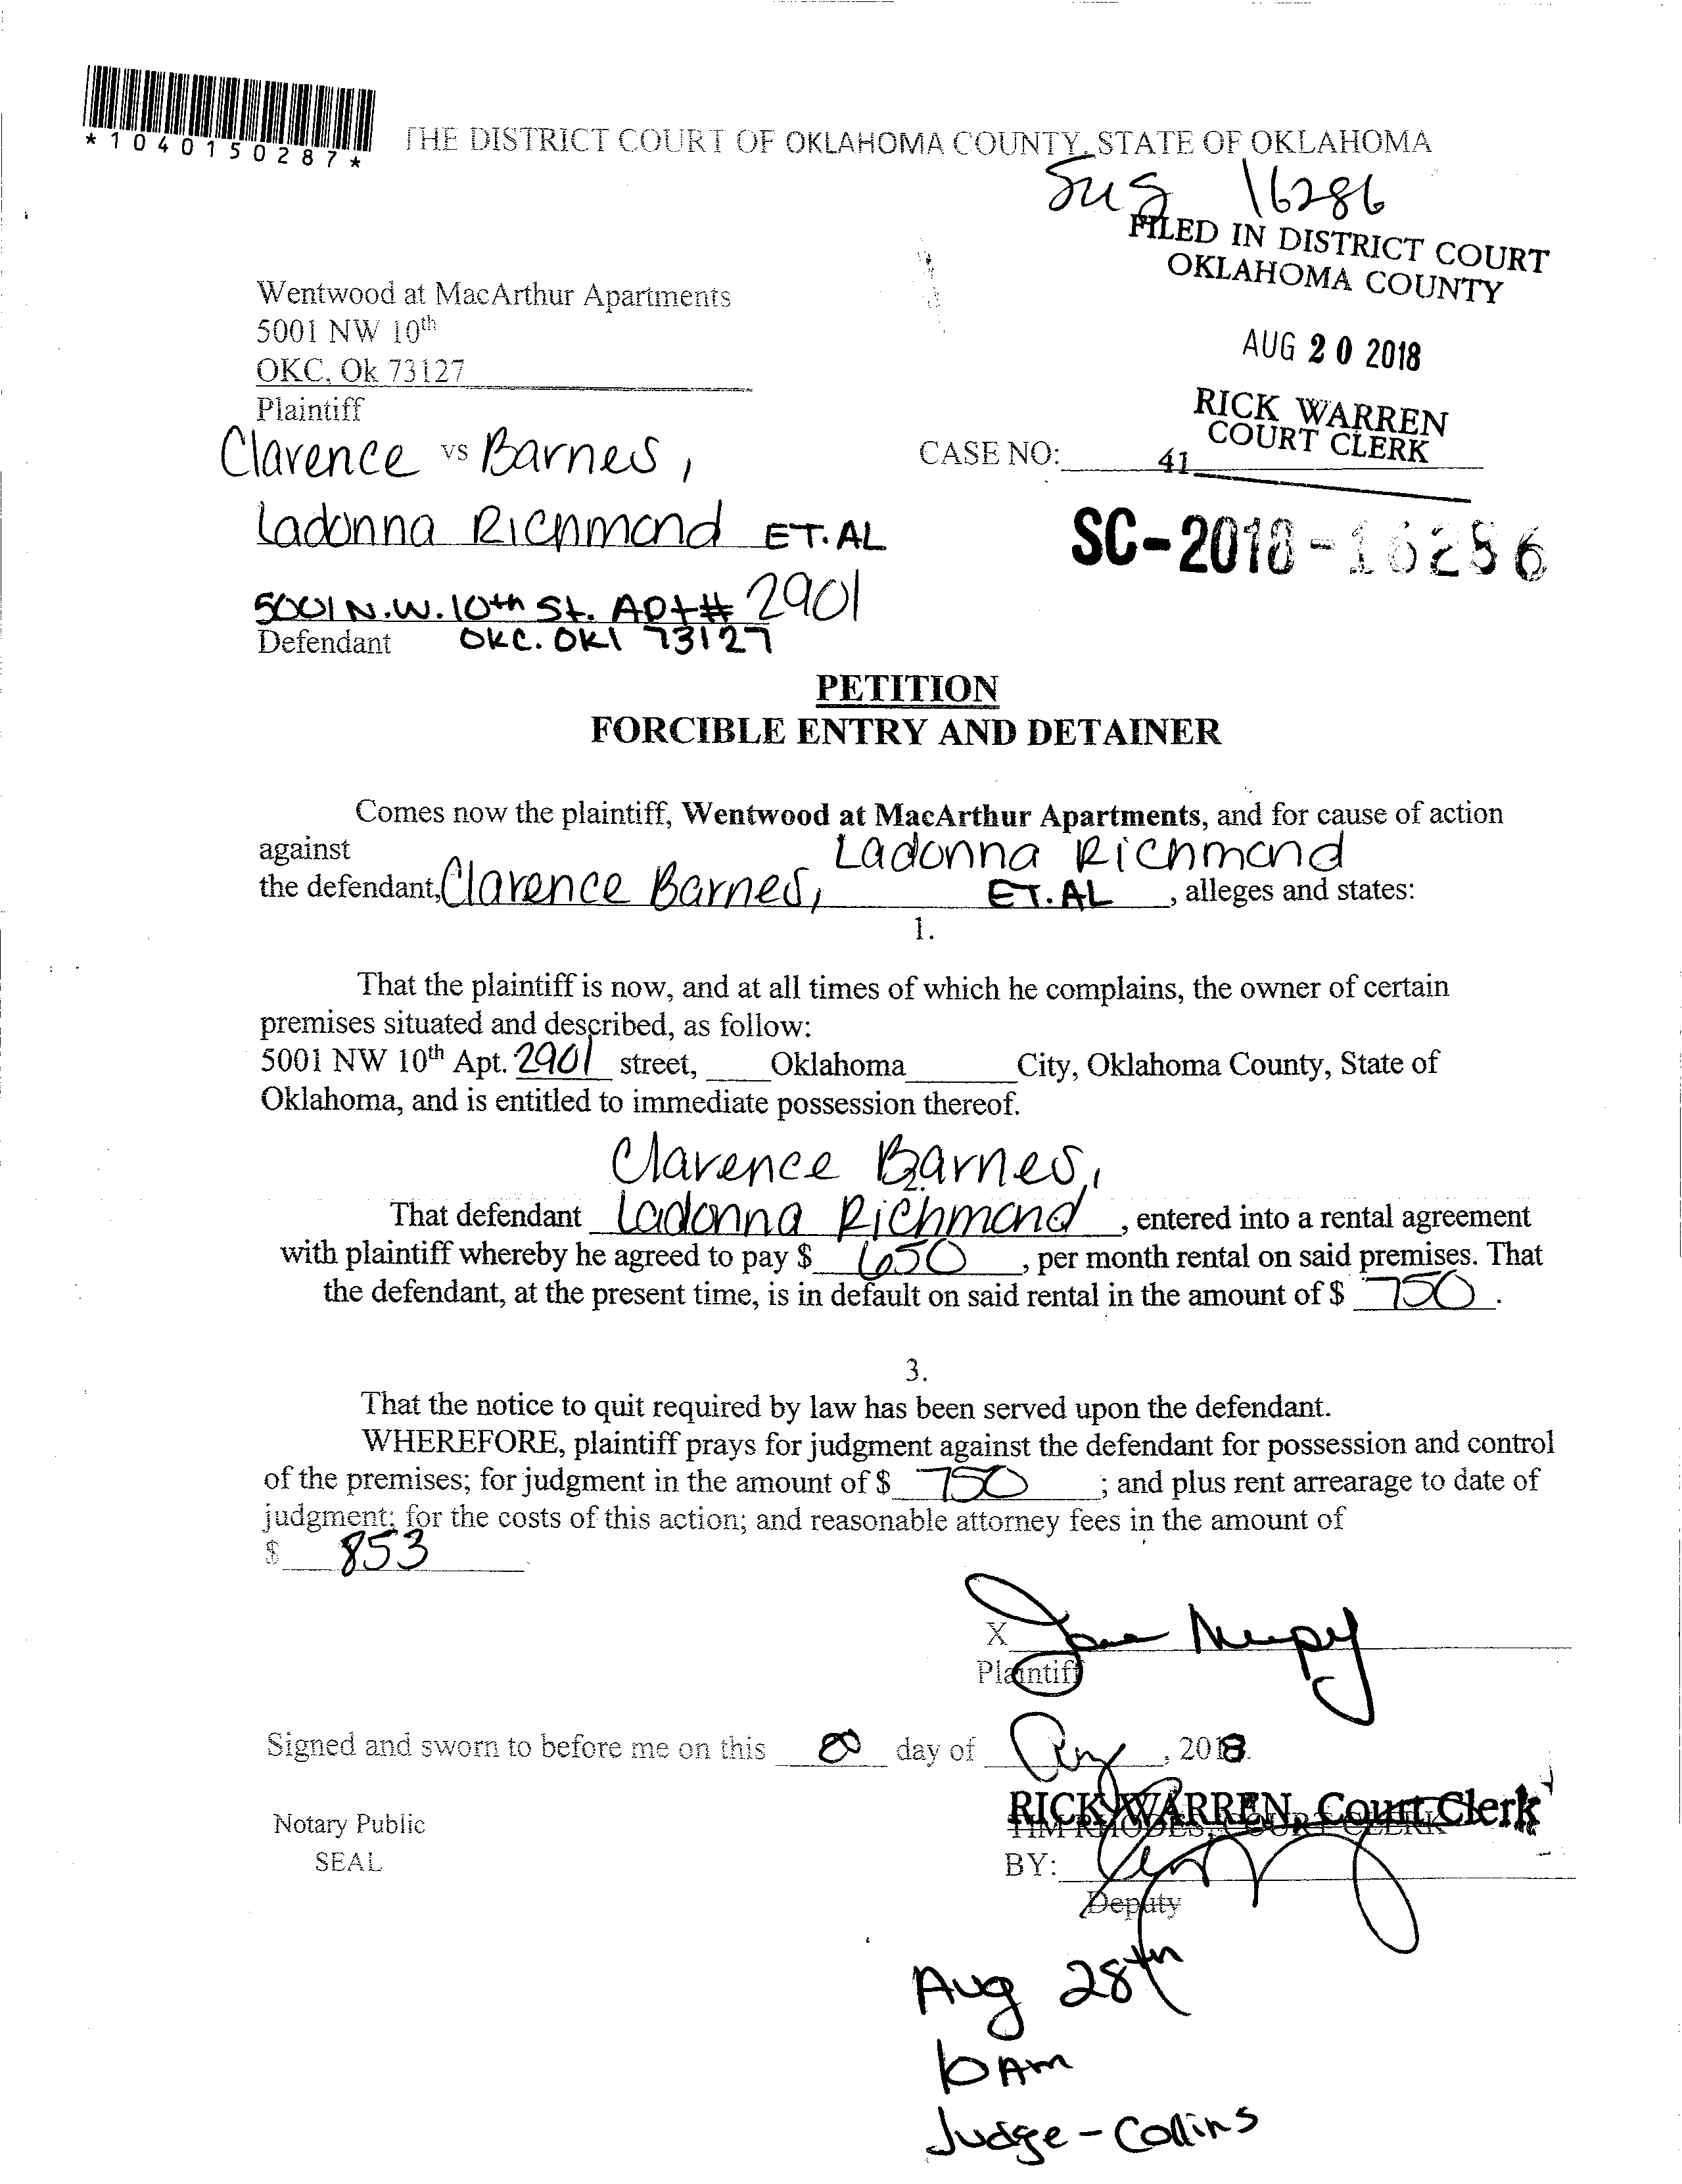 *1040150287*
THE DISTRICT COURT OF OKLAHOMA COUNTY, STATE OF OKLAHOMA
16286
FILED IN DISTRICT COURT
OKLAHOMA COUNTY
Wentwood at MacArthur Apartments
5001 NW 10th
AUG 20 2018
OKC, Ok 73127
Plaintiff
RICK WARREN
COURT CLERK
Clarence vs Barnes,
CASE NO:
41
Ladonna Richmond ET.AL
SC-2018-16286
5001 N.W. 10th St. Apt# 2901
Defendant OKC. OKl 73127
PETITION
FORCIBLE ENTRY AND DETAINER
Comes now the plaintiff, Wentwood at MacArthur Apartments, and for cause of action
against Ladonna Richmond
the defendant, Clarence Barnes, ET.AL , alleges and states:
1.
That the plaintiff is now, and at all times of which he complains, the owner of certain
premises situated and described, as follow:
5001 NW 10th Apt. 2901 street, Oklahoma City, Oklahoma County, State of
Oklahoma, and is entitled to immediate possession thereof.
Clarence Barnes,
2.
That defendant Ladonna Richmond , entered into a rental agreement
with plaintiff whereby he agreed to pay $ 650 , per month rental on said premises. That
the defendant, at the present time, is in default on said rental in the amount of $ 750 .
3.
That the notice to quit required by law has been served upon the defendant.
WHEREFORE, plaintiff prays for judgment against the defendant for possession and control
of the premises; for judgment in the amount of $ 750 ; and plus rent arrearage to date of
judgment; for the costs of this action; and reasonable attorney fees in the amount of
$ 853
X
Plaintiff
Signed and sworn to before me on this day of Aug, 2018.
RICK WARREN, Court Clerk
TIM RHODES, COURT CLERK
Notary Public
SEAL
BY:
Deputy
Aug 28th
10AM
Judge - Collins